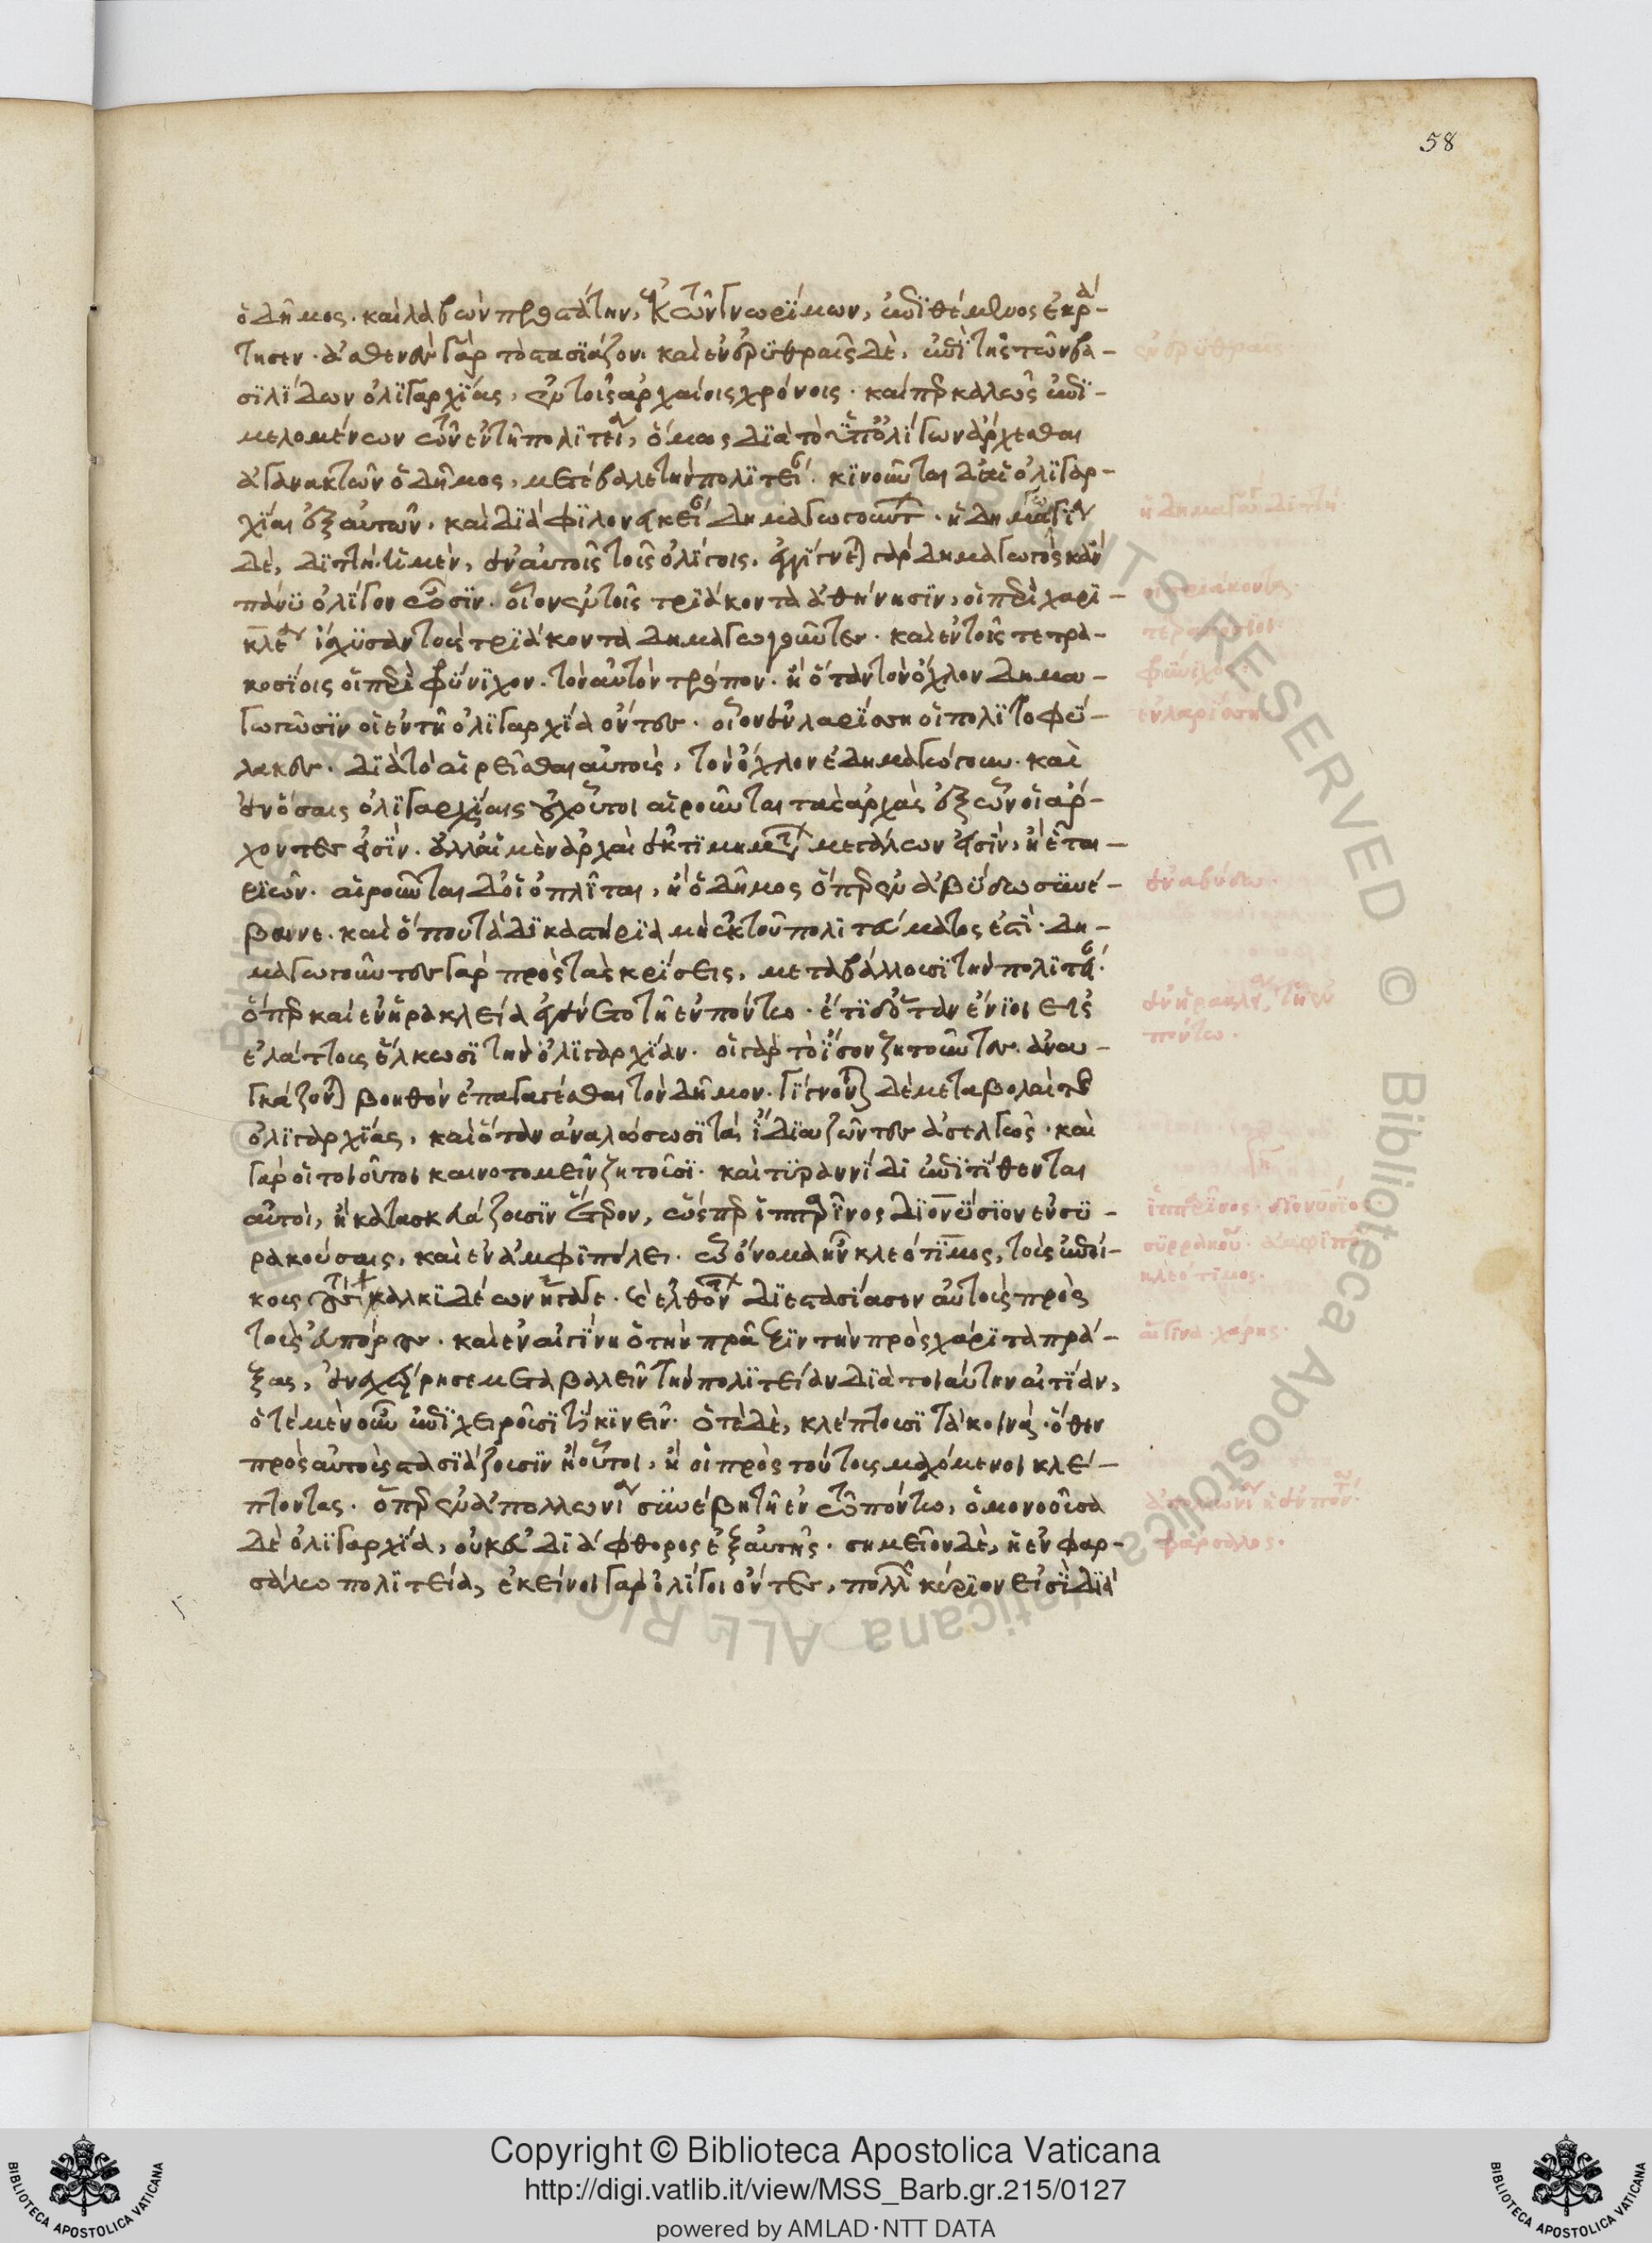 58
ὁ δῆμος. καὶ λαβὼν προστάτην, ἐκ τῶν γνωρίμων, ἐπιθέμενος ἐκρά-
τησεν. ἀσθενὲς γὰρ τὸ στασιάζον. καὶ ἐν ἐρυθραῖς δὲ, ἐπὶ τῆς τῶν βα-
σιλιδῶν ὀλιγαρχίας, ἐν τοῖς ἀρχαίοις χρόνοις. καίπερ καλῶς ἐπι-
μελομένων τῶν ἐν τῇ πολιτείᾳ, ὅμως διὰ τὸ ὑπ' ὀλίγων ἄρχεσθαι
ἀγανακτῶν ὁ δῆμος, μετέβαλε τὴν πολιτείαν. κινοῦνται δ' αἱ ὀλιγαρ-
χίαι ἐξ αὐτῶν, καὶ διὰ φιλονεικείαν δημαγωγούντων. ἡ δημαγωγία
δὲ, διττή. ἡ μὲν, ἐν αὐτοῖς τοῖς ὀλίγοις. ἐγγίγνεται γὰρ δημαγωγὸς κἂν
πάνυ ὀλίγοι ὦσιν. οἷον ἐν τοῖς τριάκοντα ἀθήνησιν, οἱ περὶ χαρι-
κλέα ἴσχυσαν τοὺς τριάκοντα δημαγωγοῦντες. καὶ ἐν τοῖς τετρα-
κοσίοις οἱ περὶ φύνιχον. τὸν αὐτὸν τρόπον. ἢ ὅταν τὸν ὄχλον δημα-
γωγῶσιν οἱ ἐν τῇ ὀλιγαρχίᾳ ὄντες. οἷον ἐν λαρίσσῃ οἱ πολιτοφύ-
λακες. διὰ τὸ αἱρεῖσθαι αὐτοὺς, τὸν ὄχλον ἐδημαγώγουν. καὶ
ἐν ὅσαις ὀλιγαρχίαις οὐχ οὗτοι αἱροῦνται τὰς ἀρχὰς ἐξ ὧν οἱ ἄρ-
χοντές εἰσιν. ἀλλ' αἱ μὲν ἀρχαὶ ἐκ τιμημάτων μεγάλων εἰσὶν, ἢ ἑται-
ριῶν. αἱροῦνται δ' οἱ ὁπλῖται, ἢ ὁ δῆμος ὅπερ ἐν ἀβύδῳ συνέ-
βαινε. καὶ ὅπου τὰ δικαστήρια μὴ ἐκ τοῦ πολιτεύματός ἐστι. δη-
μαγωγοῦντες γὰρ πρὸς τὰς κρίσεις, μεταβάλλουσι τὴν πολιτείαν.
ὅπερ καὶ ἐν ἡρακλείᾳ ἐγένετο τῇ ἐν πόντῳ. ἔτι δ' ὅταν ἔνιοι εἰς
ἐλάττους ἕλκωσι τὴν ὀλιγαρχίαν. οἱ γὰρ τὸ ἴσον ζητοῦντες. ἀναγ-
κάζονται βοηθὸν ἐπαγαγέσθαι τὸν δῆμον. γίγνονται δὲ μεταβολαὶ τῆς
ὀλιγαρχίας, καὶ ὅταν ἀναλώσωσι τὰ ἴδια ζῶντες ἀσελγῶς. καὶ
γὰρ οἱ τοιοῦτοι καινοτομεῖν ζητοῦσι. καὶ τυραννίδι ἐπιτίθενται
αὐτοὶ, ἢ κατασκευάζουσιν ἕτερον, ὥσπερ ἱππαρῖνος διονύσιον ἐν συ-
ρακούσαις, καὶ ἐν ἀμφιπόλει. ᾧ ὄνομα ἦν κλεότιμος, τοὺς ἐποί-
κους τοὺς χαλκιδέων ἤγαγε. καὶ ἐλθόντων διεστασίασεν αὐτοὺς πρὸς
τοὺς εὐπόρους. καὶ ἐν αἰγίνῃ ὁ τὴν πρᾶξιν τὴν πρὸς χάρητα πρά-
ξας, ἐνεχείρησε μεταβαλεῖν τὴν πολιτείαν διὰ τοιαύτην αἰτίαν,
ὁτὲ μὲν οὖν ἐπιχειροῦσί τι κινεῖν. ὁτὲ δὲ, κλέπτουσι τὰ κοινά. ὅθεν
πρὸς αὐτοὺς στασιάζουσιν ἢ οὗτοι, ἢ οἱ πρὸς τούτους μαχόμενοι κλέ-
πτοντας. ὅπερ ἐν ἀπολλωνίᾳ συνέβη τῇ ἐν τῷ πόντῳ, ὁμονοοῦσα
δὲ ὀλιγαρχία, οὐκ εὐδιάφθορος ἐξ αὐτῆς. σημεῖον δὲ, ἡ ἐν φαρ-
σάλῳ πολιτεία, ἐκεῖνοι γὰρ ὀλίγοι ὄντες, πολλῶν κύριοι εἰσὶ διὰ
ἐν ἐρυθραῖς
ἡ δημαγωγ διττή
οἱ τριάκοντα.
τετρακόσιοι
φύνιχο
ἐν λαρίσσῃ
ἐν ἀβύδῳ
ἐν ἡρακλείᾳ, τῇ ἐν
πόντῳ.
ἱππαρῖνος. διονύσιος
συρρακου. ἀμφιπο
κλεότιμος.
αἴγινα. χάρης.
ἀπολλωνία ἡ ἐν πόντ.
φάρσαλος.
Copyright © Biblioteca Apostolica Vaticana
http://digi.vatlib.it/view/MSS_Barb.gr.215/0127
powered by AMLAD·NTT DATA
BIBLIOTECA APOSTOLICA VATICANA
BIBLIOTECA APOSTOLICA VATICANA